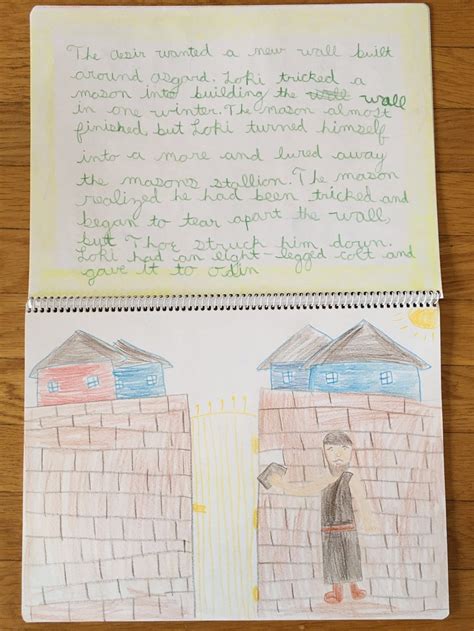 The aesir wanted a new wall built
around asgard. Loki tricked a
mason into building the wall wall
in one winter. The mason almost
finished, but Loki turned himself
into a mare and lured away
the masons stallion. The mason
realized he had been tricked and
began to tear apart the wall,
but Thor struck him down.
Loki had an eight-legged colt and
gave it to odin